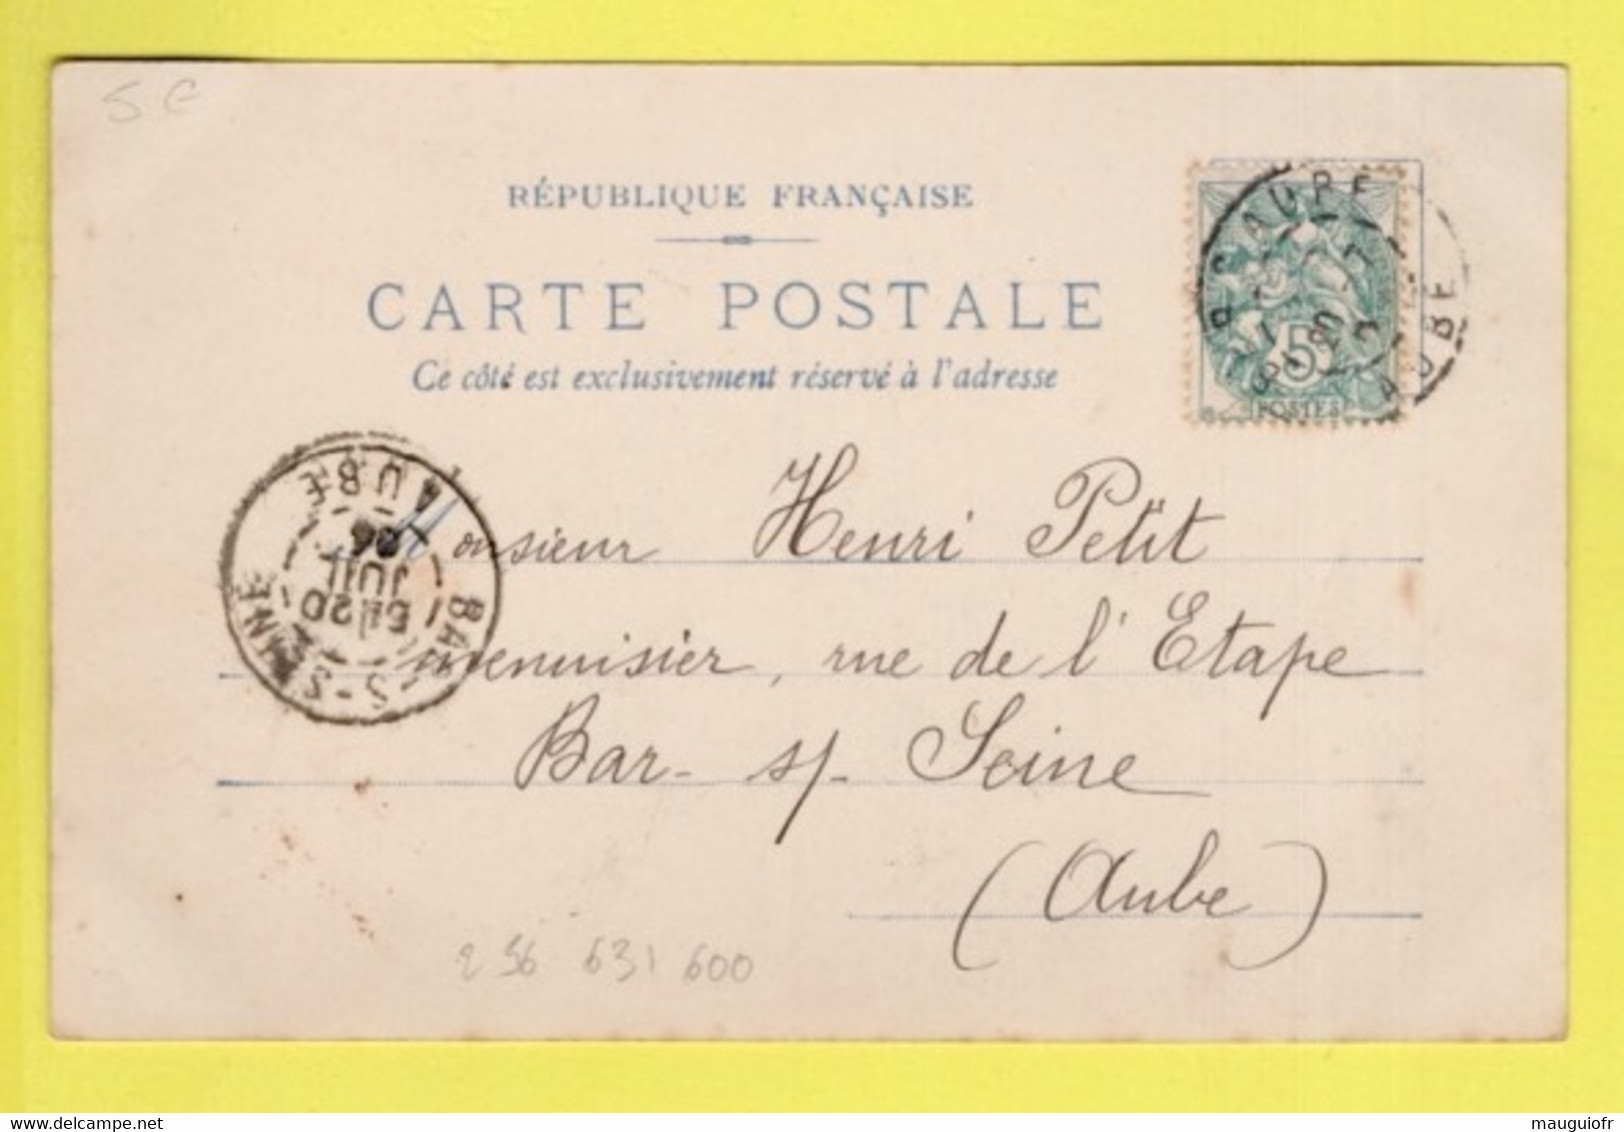 5 €
RÉPUBLIQUE FRANÇAISE
CARTE POSTALE
Ce côté est exclusivement réservé à l'adresse
BAR-S-AUBE
AUBE
5
POSTES
BAR-S-SEINE
5E 20
JUIL
04
AUBE
Monsieur Henri Petit
menuisier, rue de l'Etape
Bar- s/- Seine
(Aube)
256 631 600
mauguiofr